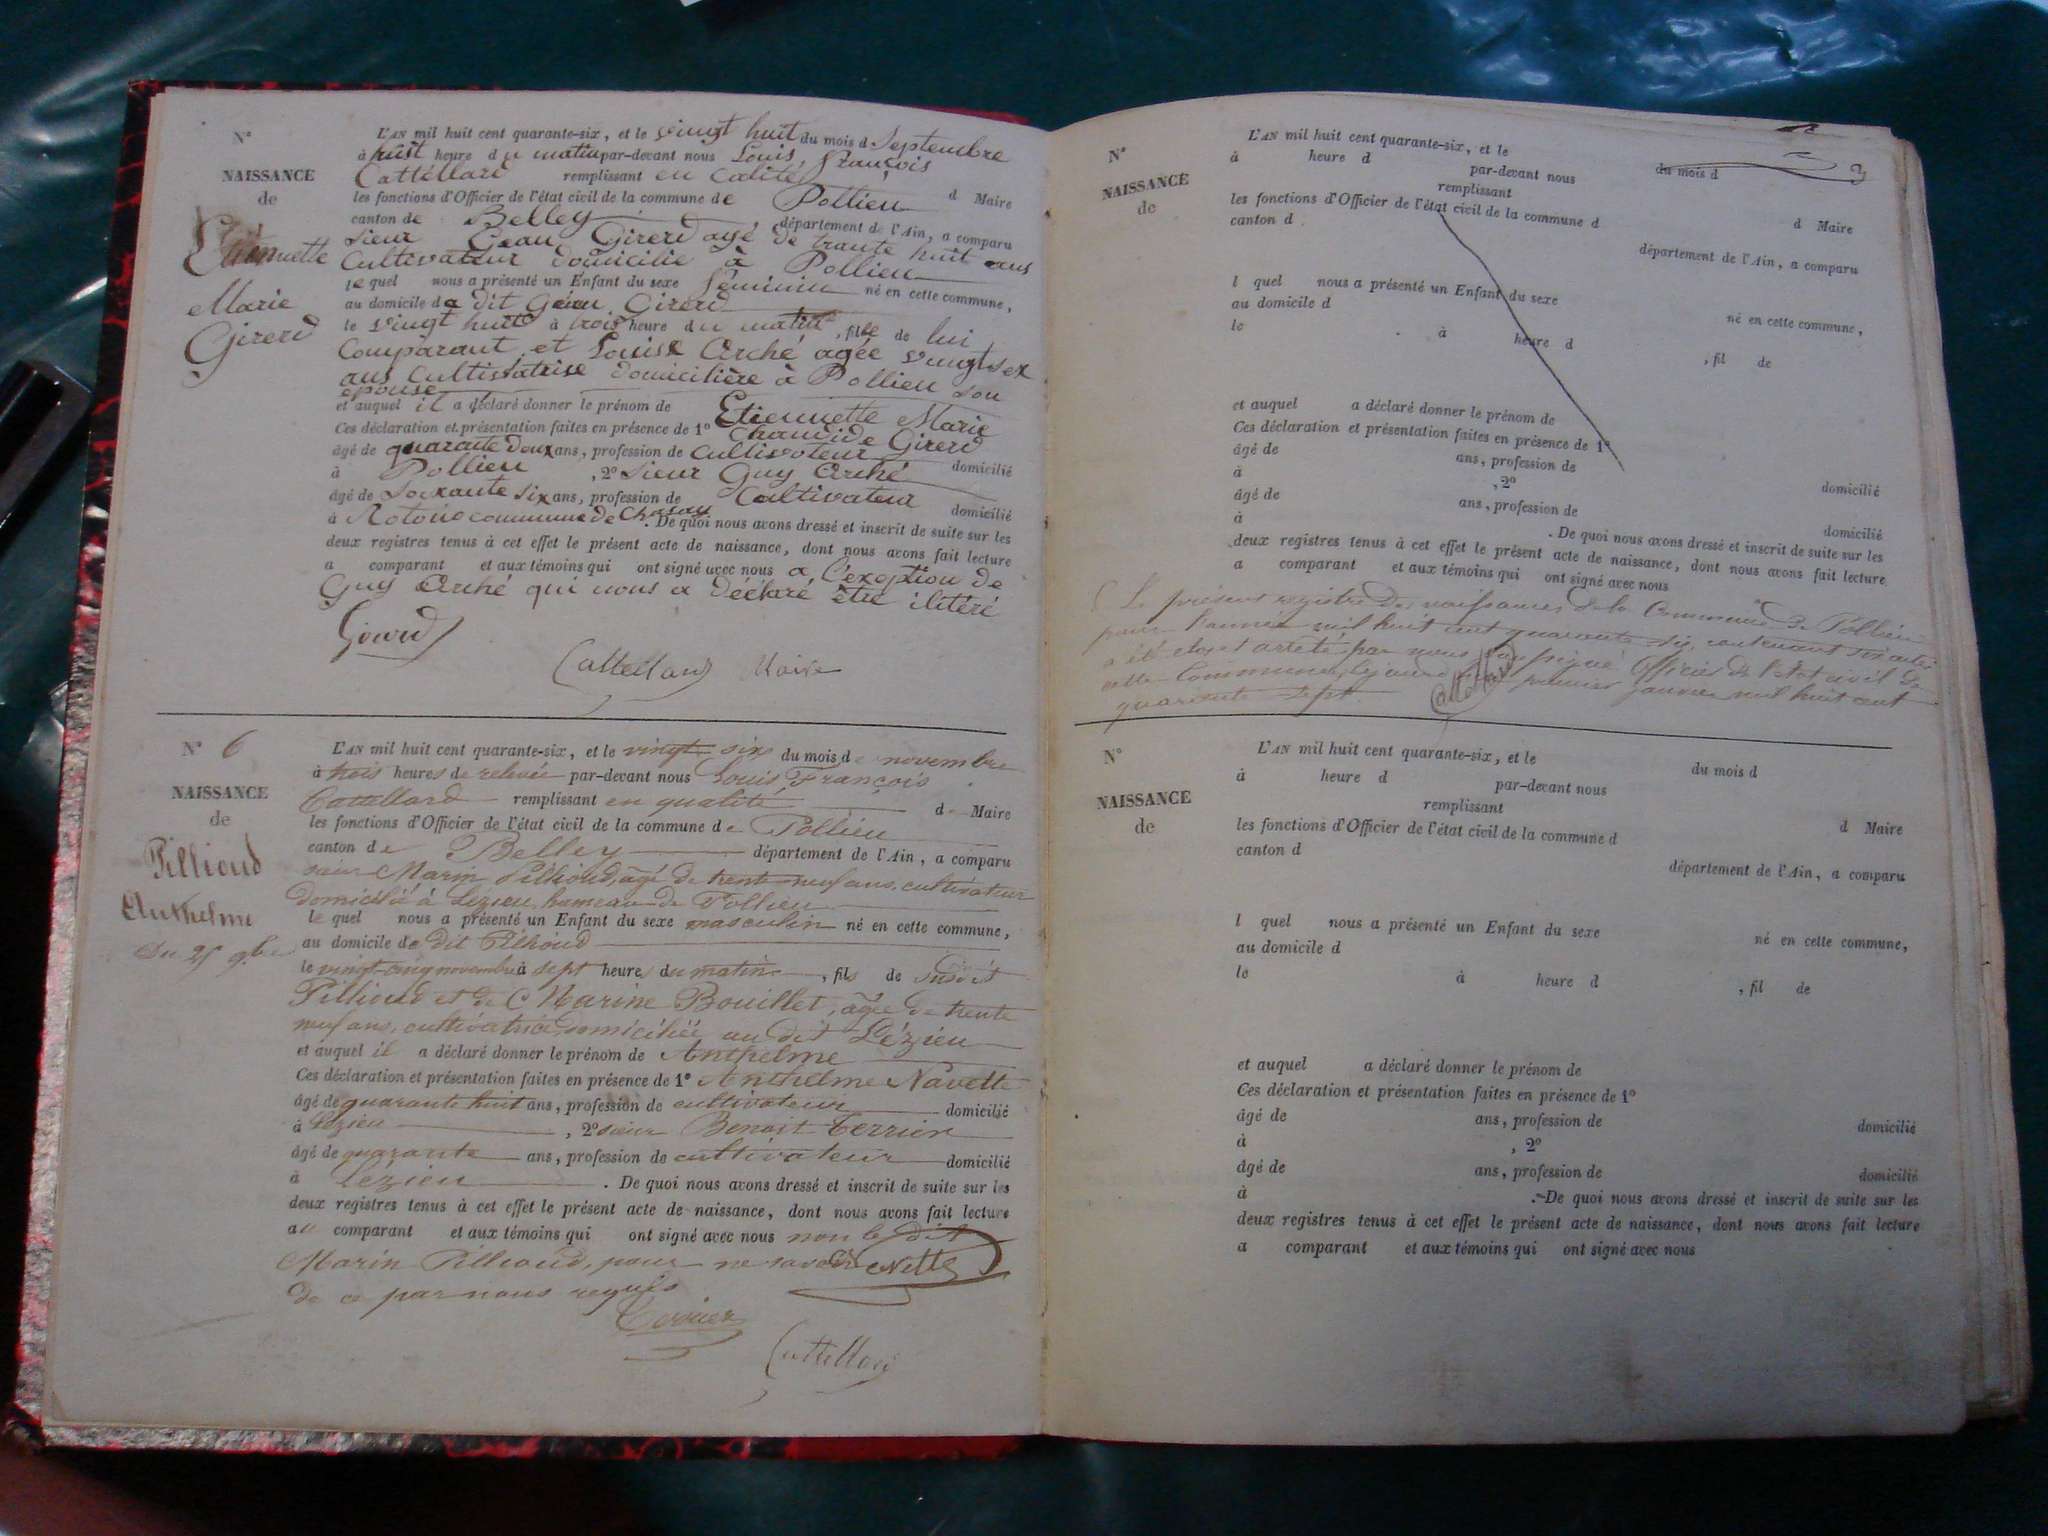 N°
NAISSANCE
de
Etiennette
Marie
Girerd
L'AN mil huit cent quarante-six, et le vingt huit du mois d Septembre
à huit heure du matin par-devant nous Louis, François
Cattéllard remplissant en calité d Maire
les fonctions d'Officier de l'état civil de la commune de Pollieu
canton de Belley département de l'Ain, a comparu
sieur Gean Girerd agé de trante huit ans
Cultivateur domicilié à Pollieu
le quel nous a présenté un Enfant du sexe féminin né en cette commune,
au domicile d dit Gean Girerd
le vingt huit à trois heure du matin, fille de lui
Comparant et Louise Arché agée vingt sex
ans Cultivatrise domicilière à Pollieu son
epouse
et auquel il a déclaré donner le prénom de Etiennette Marie
Ces déclaration et présentation faites en présence de 1° Girerd
âgé de quarante deux ans, profession de cultivateur domicilié
à Pollieu, 2° sieur Guy Arché
âgé de soixante six ans, profession de Cultivateur domicilié
à commune de . De quoi nous avons dressé et inscrit de suite sur les
deux registres tenus à cet effet le présent acte de naissance, dont nous avons fait lecture
a comparant et aux témoins qui ont signé avec nous a l'exeption de
Guy Arché qui nous a déclaré être ilitéré
Girerd
Cattellard Maire
N° 6
NAISSANCE
de
Pillioud
Anthelme
Du 25 9.bre
L'AN mil huit cent quarante-six, et le vingt-six du mois de novembre
à trois heures de relevée par-devant nous Louis François
Cattellard remplissant en qualité de Maire
les fonctions d'Officier de l'état civil de la commune de Pollieu
canton de Belley département de l'Ain, a comparu
sieur Marin Pillioud, âgé de trente neuf ans, cultivateur
domicilié à Lézieu, hameau de Pollieu
le quel nous a présenté un Enfant du sexe masculin né en cette commune,
au domicile de dit Pillioud
le vingt-cinq novembre à sept heures du matin, fils de susdit
Pillioud et de Marine Bouillet, âgée de trente
neuf ans, cultivatrice, domiciliée au dit Lézieu
et auquel il a déclaré donner le prénom de Anthelme
Ces déclaration et présentation faites en présence de 1° Anthelme Navette
âgé de quarante huit ans, profession de cultivateur domicilié
à Lézieu, 2° sieur Benoit Terrier
âgé de quarante ans, profession de cultivateur domicilié
à Lézieu. De quoi nous avons dressé et inscrit de suite sur les
deux registres tenus à cet effet le présent acte de naissance, dont nous avons fait lecture
au comparant et aux témoins qui ont signé avec nous non le dit
Marin Pillioud, pour ne savoir
de ce par nous requis
Terrier
Cattellard
3
N°
NAISSANCE
de
L'AN mil huit cent quarante-six, et le du mois d
à heure d par-devant nous
remplissant d Maire
les fonctions d'Officier de l'état civil de la commune d
canton d département de l'Ain, a comparu
l quel nous a présenté un Enfant du sexe né en cette commune,
au domicile d
le à heure d , fil de
et auquel a déclaré donner le prénom de
Ces déclaration et présentation faites en présence de 1°
âgé de ans, profession de domicilié
à , 2°
âgé de ans, profession de domicilié
à . De quoi nous avons dressé et inscrit de suite sur les
deux registres tenus à cet effet le présent acte de naissance, dont nous avons fait lecture
a comparant et aux témoins qui ont signé avec nous
Le présent registre des naissances de la Commune de Pollieu
pour l'année mil huit cent quarante six, contenant six actes
a été clos et arrêté par nous soussigné Officier de l'état civil de
cette Commune, premier janvier mil huit cent
quarante sept.
Cattellard
N°
NAISSANCE
de
L'AN mil huit cent quarante-six, et le du mois d
à heure d par-devant nous
remplissant d Maire
les fonctions d'Officier de l'état civil de la commune d
canton d département de l'Ain, a comparu
l quel nous a présenté un Enfant du sexe né en cette commune,
au domicile d
le à heure d , fil de
et auquel a déclaré donner le prénom de
Ces déclaration et présentation faites en présence de 1°
âgé de ans, profession de domicilié
à , 2°
âgé de ans, profession de domicilié
à . De quoi nous avons dressé et inscrit de suite sur les
deux registres tenus à cet effet le présent acte de naissance, dont nous avons fait lecture
a comparant et aux témoins qui ont signé avec nous